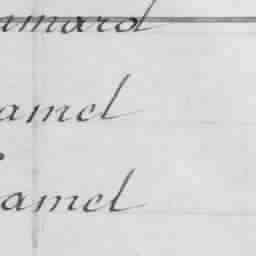 amard
amel
amel